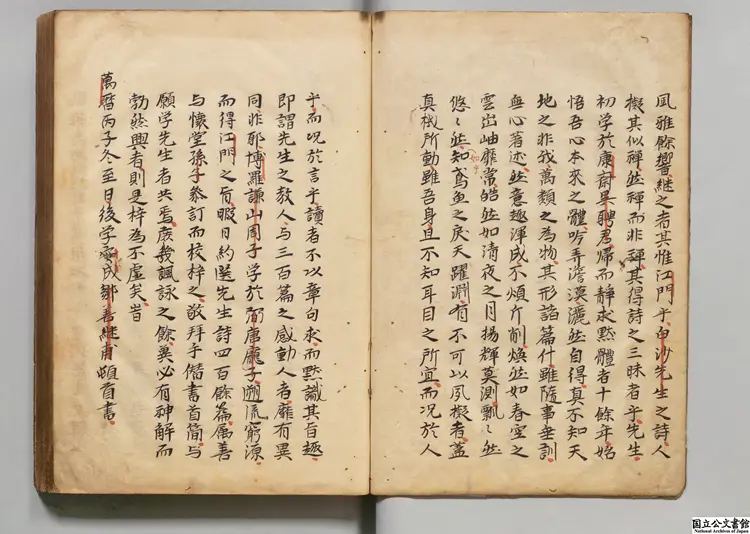 風雅餘響継之者其惟江門乎白沙先生之詩人
擬其似禪然禪而非禪其得詩之三昧者乎先生
初学於康齋吳聘君帰而静求默體者十餘年始
悟吾心本來之體吟弄澹漠灑然自得真不知天
地之非我萬類之為物其形諸篇什雖隨事垂訓
無心著述然意趣渾成不煩斤削煥然如春空之
雲出岫靡常皓然如清夜之月揚輝莫測飄〻然
悠〻然知鳶魚之戾天躍淵有不可以夙擬者蓋
真機所動雖吾身且不知耳目之所宜而况於人
乎而况於言乎讀者不以章句求而默識其旨趣
即謂先生之教人與三百篇之感動人者靡有異
同非耶博羅謙山周子学於弼唐龐子遡流窮源
而得江門之旨暇日約選先生詩四百餘篇属善
与懐堂孫子叅訂而校梓之敬拜手僭書首简与
願学先生者共焉庻幾諷詠之餘奚必有神解而
勃然興者則是梓為不虛矣旹
萬曆丙子冬至日後学安成鄒善継甫頓首書
国立公文書館
National Archives of Japan